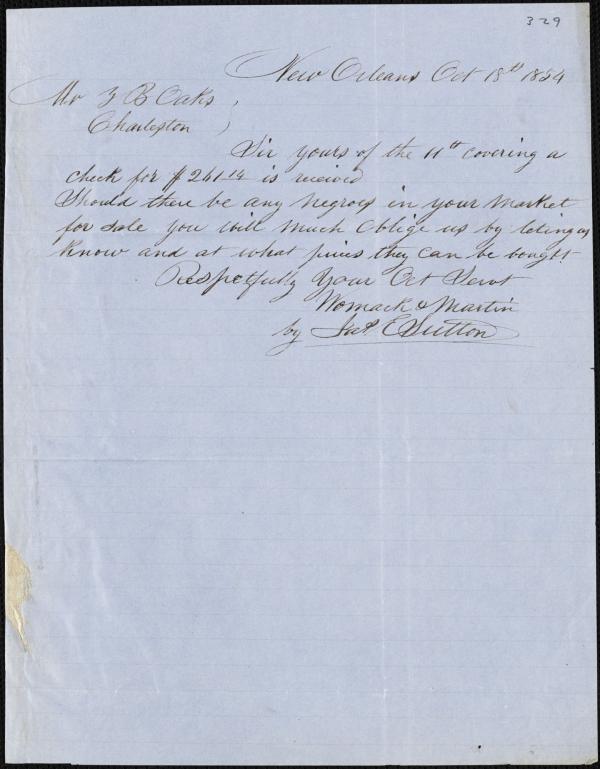 329
New Orleans Oct 18th 1854
Mr Z B Oaks
Charleston
Sir yours of the 11th covering a
check for $ 261.14 is received
Should there be any Negroes in your Market
for sale you will much oblige us by leting us
know and at what prices they can be bought
Respectfully Your Obt Servt
Womack & Martin
by Jas E Sutton